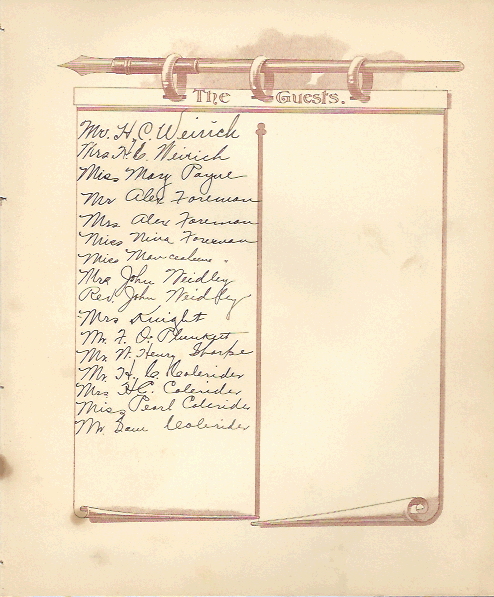 The Guests.
Mr. H. C. Weirich
Mrs. H. C. Weirich
Miss Mary Payne
Mr Alex Foreman
Mrs Alex Foreman
Miss Nina Foreman
Miss "
Mrs John Weidley
Rev. John Weidley
Mrs Knight
Mr. F. O. Plunkett
Mr. W. Henry Sharpe
Mr. H. C. Colerider
Mrs H C. Colerider
Miss Pearl Colerider
Mr. Colerider